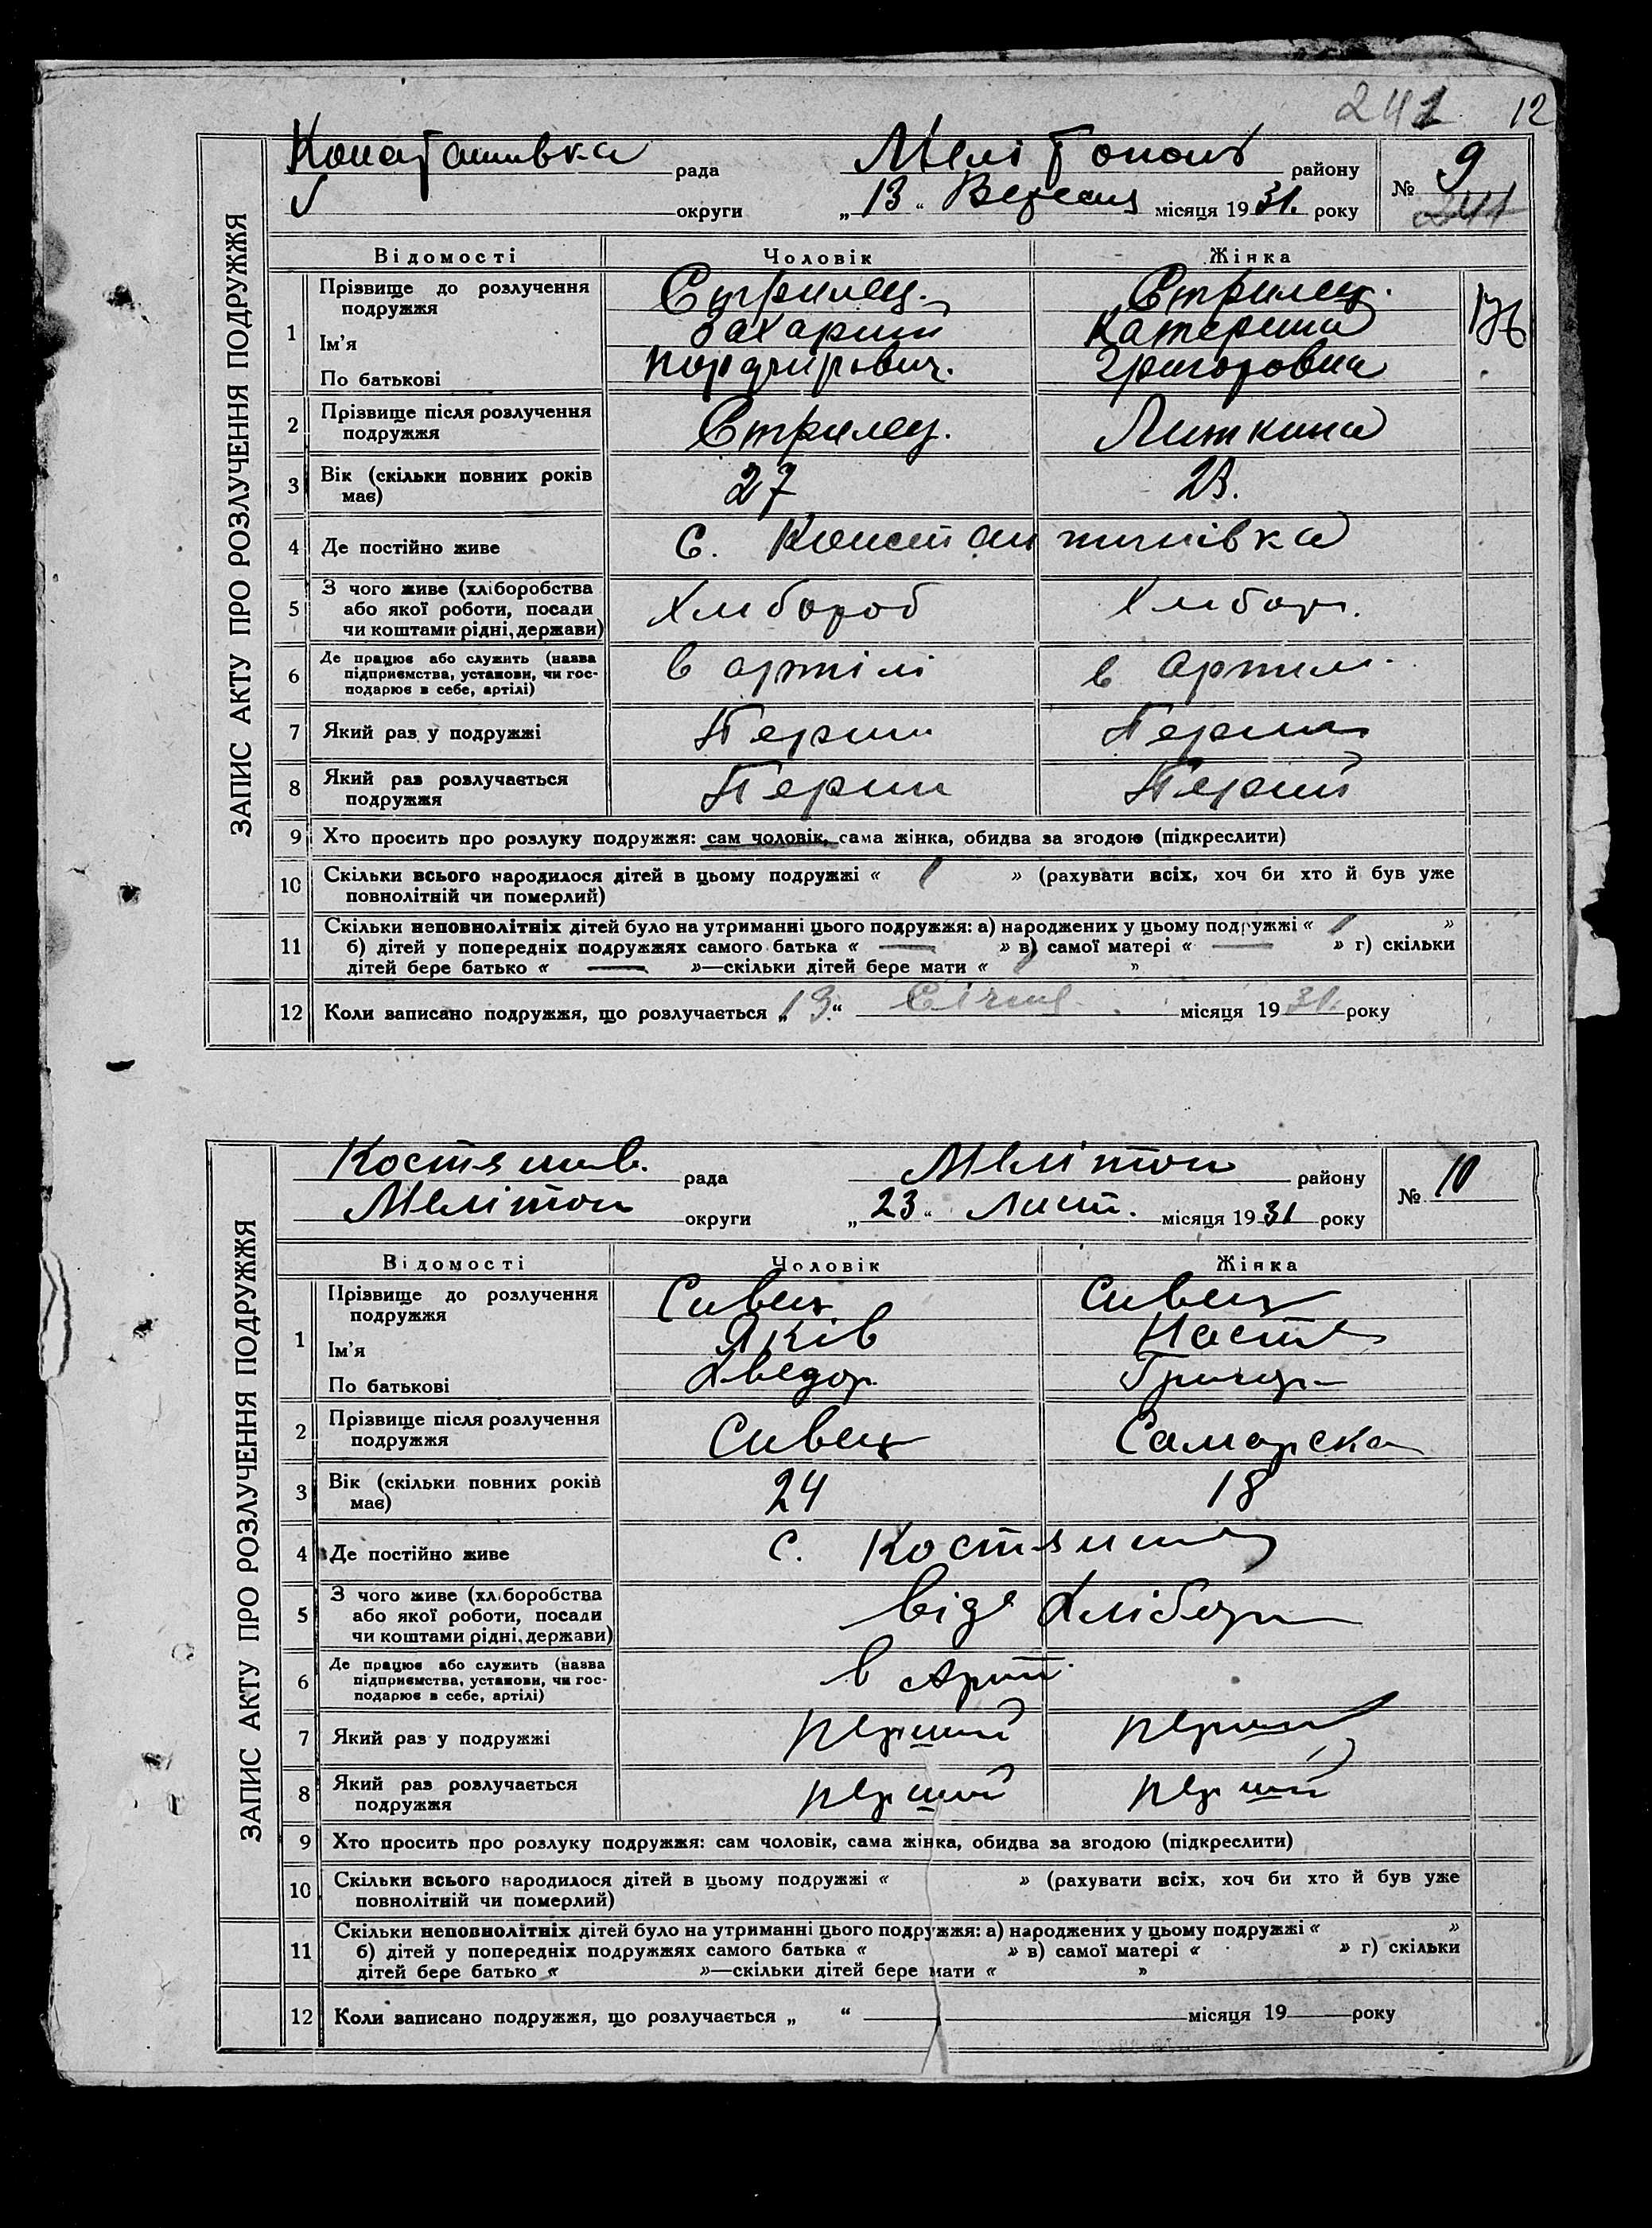 241 12
ЗАПИС АКТУ ПРО РОЗЛУЧЕННЯ ПОДРУЖЖЯ
рада Мелітополь району № 9
округи „13“ Вересня місяця 1931. року 241
Відомості Чоловік Жінка
1 Прізвище до розлучення подружжя Стрилец. Стрилец.
Ім’я Захарий Катерина
По батькові Порфирович. Григоровна
2 Прізвище після розлучення подружжя Стрилец. Литкина
3 Вік (скільки повних років має) 27 23.
4 Де постійно живе С. Константинівка
5 З чого живе (хліборобства або якої роботи, посади чи коштами рідні, держави) Хлибороб Хлибор.
6 Де працює або служить (назва підприємства, установи, чи господарює в себе, артілі) в артілі в артили
7 Який раз у подружжі Перши
8 Який раз розлучається подружжя Перши Перший
9 Хто просить про розлуку подружжя: сам чоловік, сама жінка, обидва за згодою (підкреслити)
10 Скільки всього народилося дітей в цьому подружжі « 1 » (рахувати всіх, хоч би хто й був уже
повнолітній чи померлий)
11 Скільки неповнолітніх дітей було на утриманні цього подружжя: а) народжених у цьому подружжі « 1 »
б) дітей у попередніх подружжях самого батька « — » в) самої матері « — » г) скільки
дітей бере батько « — »—скільки дітей бере мати « »
12 Коли записано подружжя, що розлучається „13“ Січня місяця 1931. року
ЗАПИС АКТУ ПРО РОЗЛУЧЕННЯ ПОДРУЖЖЯ
рада Мелітоп району № 10
Мелітоп округи „23“ Лист. місяця 1931 року
Відомості Чоловік Жінка
1 Прізвище до розлучення подружжя Сивець Сивець
Ім’я Яків Настя
По батькові Хведор Григор
2 Прізвище після розлучення подружжя Сивець Самарска
3 Вік (скільки повних років має) 24 18
4 Де постійно живе С.
5 З чого живе (хліборобства або якої роботи, посади чи коштами рідні, держави) від Хлібор
6 Де працює або служить (назва підприємства, установи, чи господарює в себе, артілі) в Арт.
7 Який раз у подружжі перший перший
8 Який раз розлучається подружжя перший перший
9 Хто просить про розлуку подружжя: сам чоловік, сама жінка, обидва за згодою (підкреслити)
10 Скільки всього народилося дітей в цьому подружжі « » (рахувати всіх, хоч би хто й був уже
повнолітній чи померлий)
11 Скільки неповнолітніх дітей було на утриманні цього подружжя: а) народжених у цьому подружжі « »
б) дітей у попередніх подружжях самого батька « » в) самої матері « » г) скільки
дітей бере батько « »—скільки дітей бере мати « »
12 Коли записано подружжя, що розлучається „ “ місяця 19 року